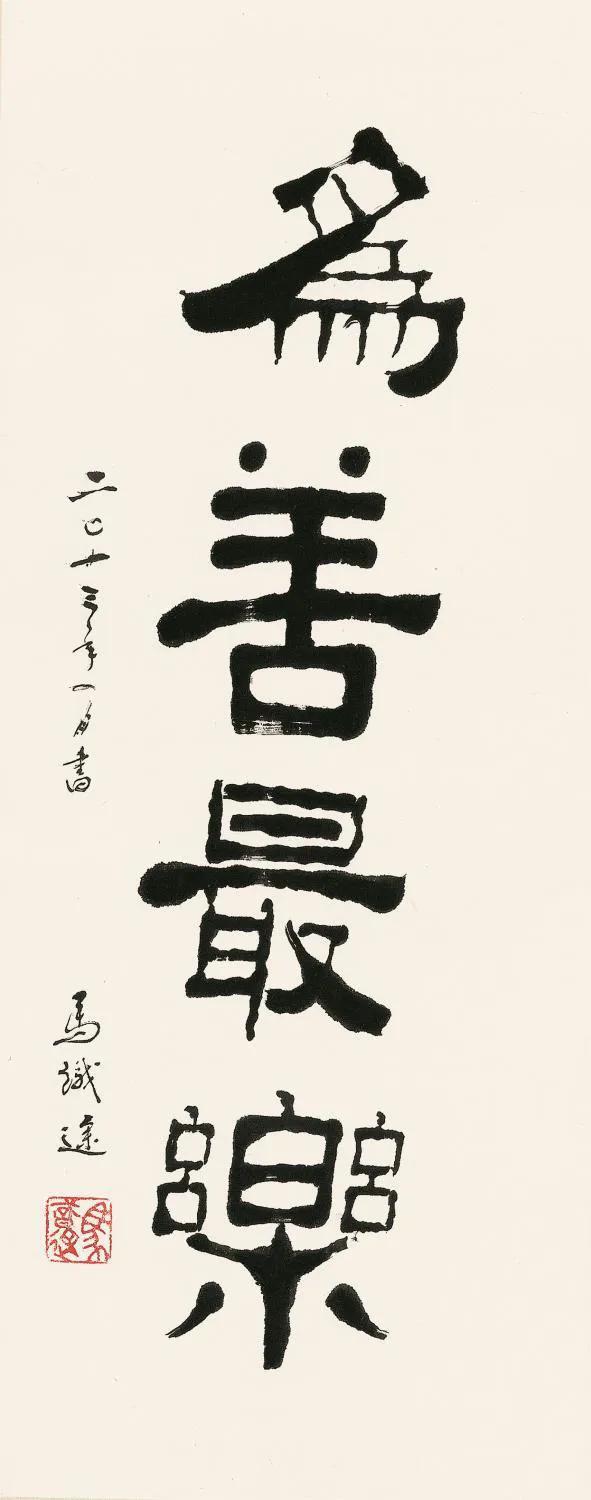 為善最樂
二〇十三年一月書
馬識途